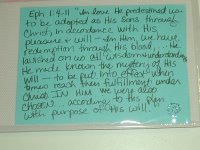 Eph. 1:4-11 "In love He predestined us
to be adopted as His sons through
Christ, in accordance with His
pleasure & will — In Him, we have
redemption through His blood,... He
lavished on us all wisdom & understanding
He made known the mystery of His
will — to be put into effect when
times reach their fulfillment under
Christ. IN HIM we were also
chosen according to this plan
with purpose of His will.